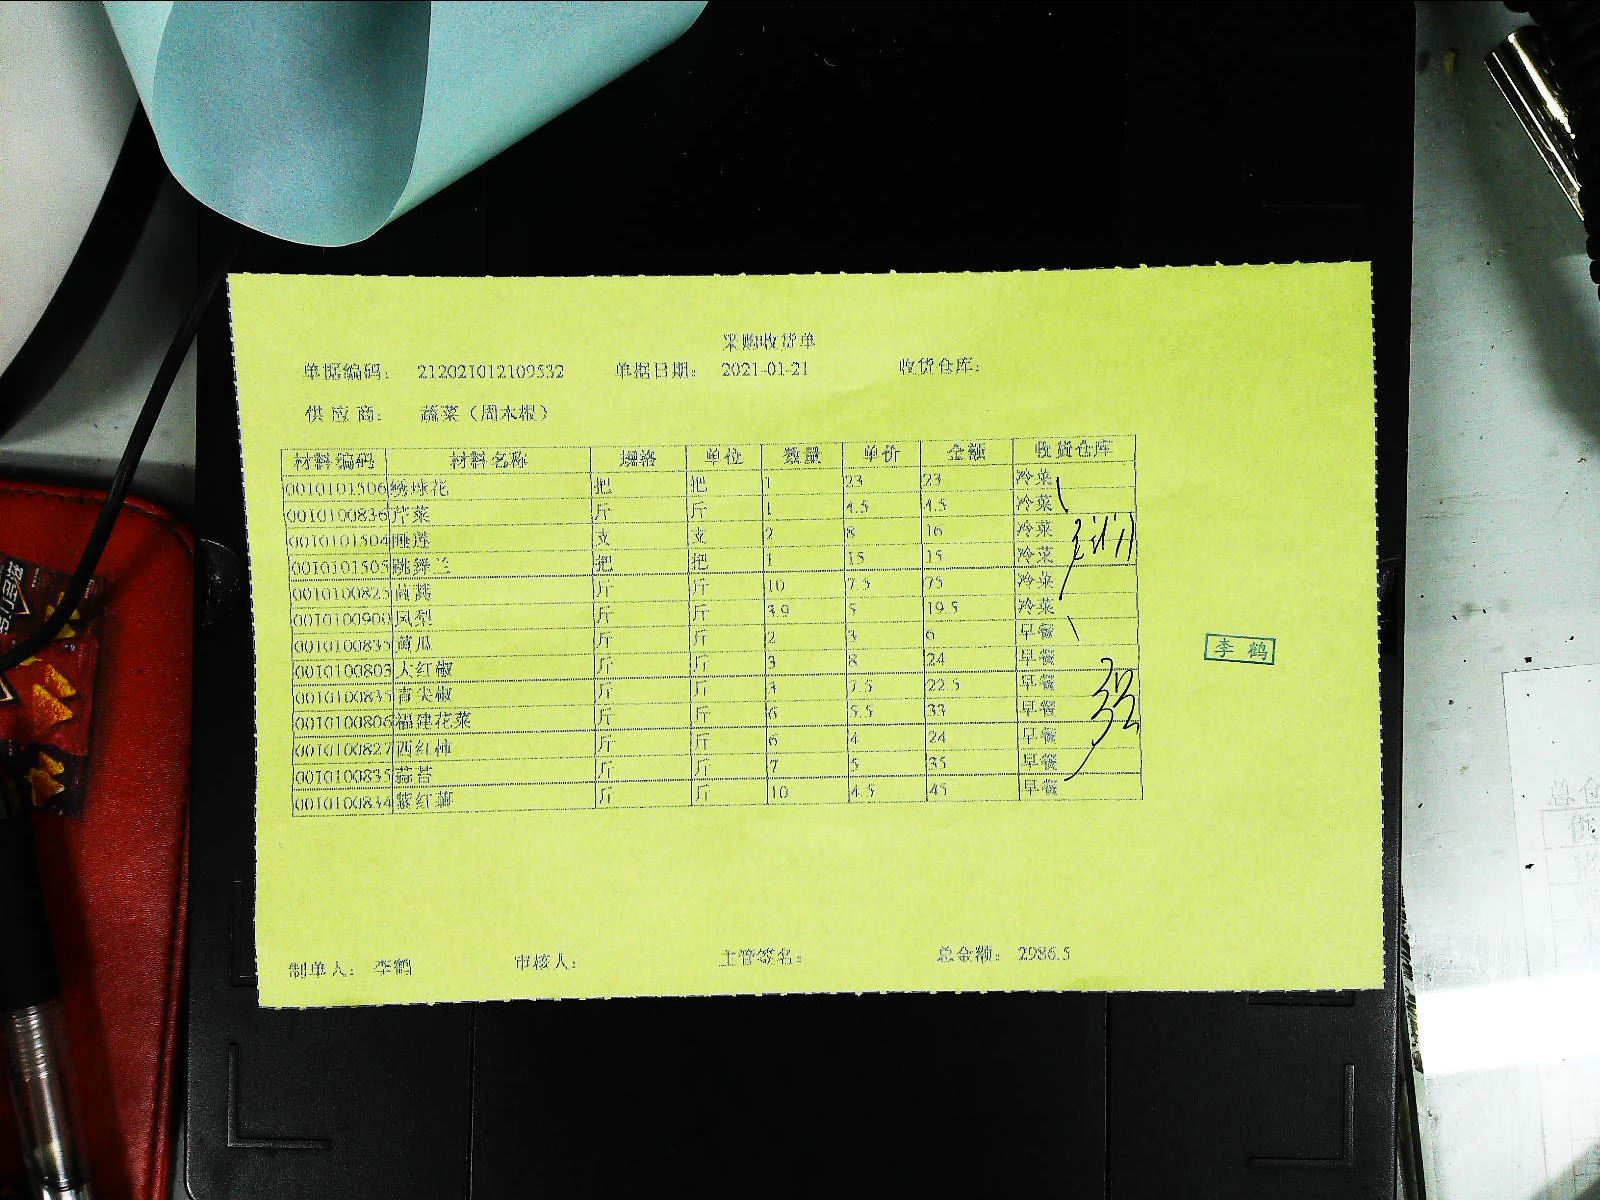 采购收货单
单据编码: 212021012109532 单据日期: 2021-01-21 收货仓库:
供应商: 蔬菜（周永根）
材料编码 材料名称 规格 单位 数量 单价 金额 收货仓库
0010101506 绣球花 把 把 1 23 23 冷菜
0010100836 芹菜 斤 斤 1 4.5 4.5 冷菜
0010101504 睡莲 支 支 2 8 16 冷菜
0010101505 跳舞兰 把 把 1 15 15 冷菜
0010100825 斤 斤 10 7.5 75 冷菜
0010100900 凤梨 斤 斤 3.9 5 19.5 冷菜
0010100835 黄瓜 斤 斤 2 3 6 早餐
0010100803 大红椒 斤 斤 3 8 24 早餐
0010100835 青尖椒 斤 斤 3 7.5 22.5 早餐
0010100806 福建花菜 斤 斤 6 5.5 33 早餐
0010100827 西红柿 斤 斤 6 4 24 早餐
0010100835 蒜苔 斤 斤 7 5 35 早餐
0010100834 紫红薯 斤 斤 10 4.5 45 早餐
李鹤
制单人: 李鹤 审核人: 主管签名: 总金额: 2986.5